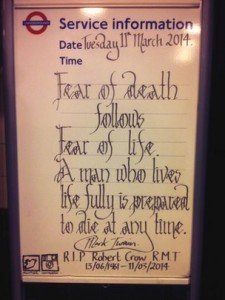 Service information
Date Tuesday 11th March 2014.
Time
Fear of death
follows
Fear of life.
A man who lives
life fully is prepared
to die at any time.
Mark Twain
R.I.P Robert Crow R.M.T
13/06/1961 – 11/03/2014